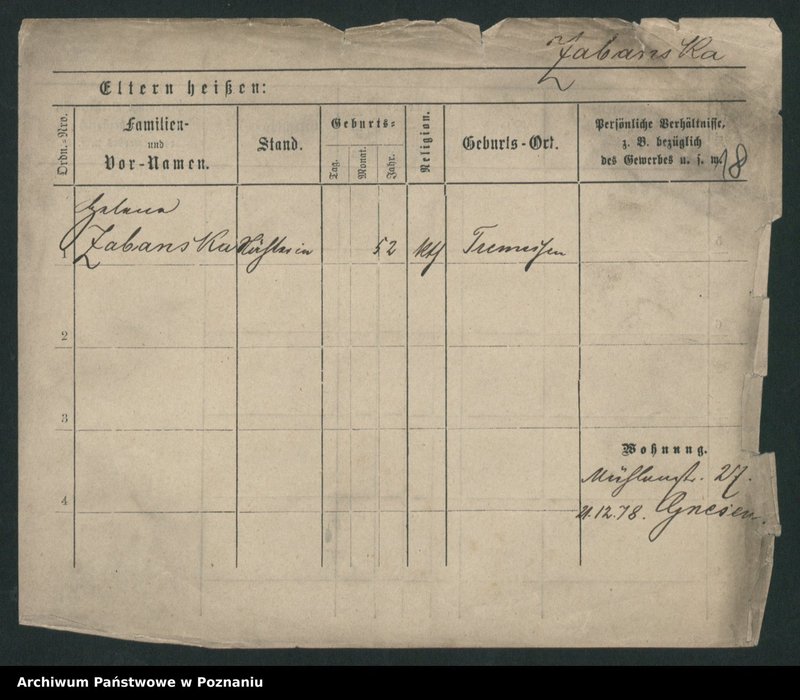 Zabanska
Eltern heißen:
Ordn.-Nro.
Familien-
und
Vor-Namen.
Stand.
Geburts-
Tag.
Monat.
Jahr.
Religion.
Geburts-Ort.
Persönliche Verhältnisse,
z. B. bezüglich
des Gewerbes u. s. w.
18
Helena
1 Zabanska 52 kth Tremessen
2
3
4
Wohnung.
Mühlenstr. 27.
21.12.78. Gnesen.
Archiwum Państwowe w Poznaniu